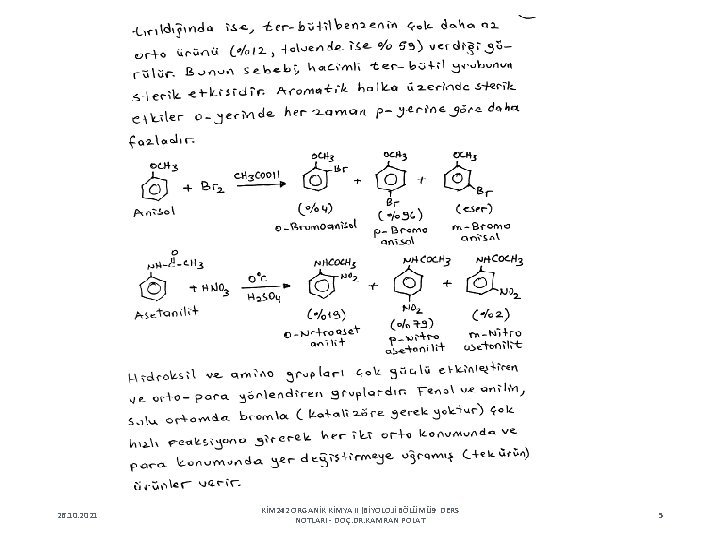 tırıldığında ise, ter-bütilbenzenin çok daha az
orto ürünü (%12, toluende ise %59) verdiği gö-
rülür. Bunun sebebi, hacimli ter-bütil grubunun
sterik etkisidir. Aromatik halka üzerinde sterik
etkiler o-yerinde her zaman p-yerine göre daha
fazladır.
OCH3 + Br2 CH3COOH OCH3 Br + OCH3 Br + OCH3 Br
Anisol (%4) (%96) (eser)
o-Bromoanisol p-Bromo anisol m-Bromo anisol
NH-C-CH3 O + HNO3 0°C H2SO4 NHCOCH3 NO2 + NHCOCH3 NO2 + NHCOCH3 NO2
Asetanilit (%19) (%79) (%2)
o-Nitroaset anilit p-Nitro asetanilit m-Nitro asetanilit
Hidroksil ve amino grupları çok güçlü etkinleştiren
ve orto-para yönlendiren gruplardır. Fenol ve anilin,
sulu ortamda bromla (katalizöre gerek yoktur) çok
hızlı reaksiyona girerek her iki orto konumunda ve
para konumunda yer değiştirmeye uğramış (tek ürün)
ürünler verir.
26.10.2021
KİM242 ORGANİK KİMYA II (BİYOLOJİ BÖLÜMÜ)- DERS
NOTLARI - DOÇ.DR.KAMRAN POLAT
5